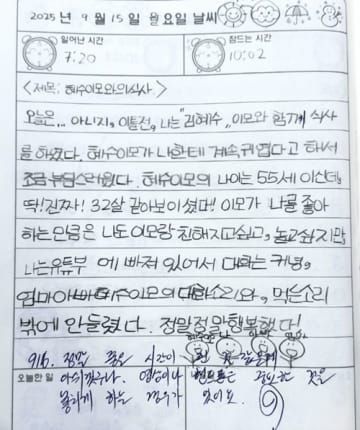 2025 년 9 월 15 일 월요일 날씨
일어난 시간 잠드는 시간
7:20 10:02
<제목: 혜수이모와의식사>
오늘은... 아니지, 이틀전, 나는 "김혜수" 이모와 함께 식사
를 하였다. 혜수이모가 나한테 계속귀엽다고 해서
조금 부담스러웠다. 혜수이모의 나이는 55세 이신데,
딱!진짜! 32살 같아보이셨다! 이모가 나를 좋아
하는만큼은 나도 이모랑 친해지고싶고, 놀고싶지만,
나는유튜부 에 빠져 있어서 대화는 커녕,
엄마아빠혜수이모의 대화소리와, 먹는소리
밖에 안들렸다. 정말정말행복했다!
9/6. 정말 좋은 시간이
오늘한 일